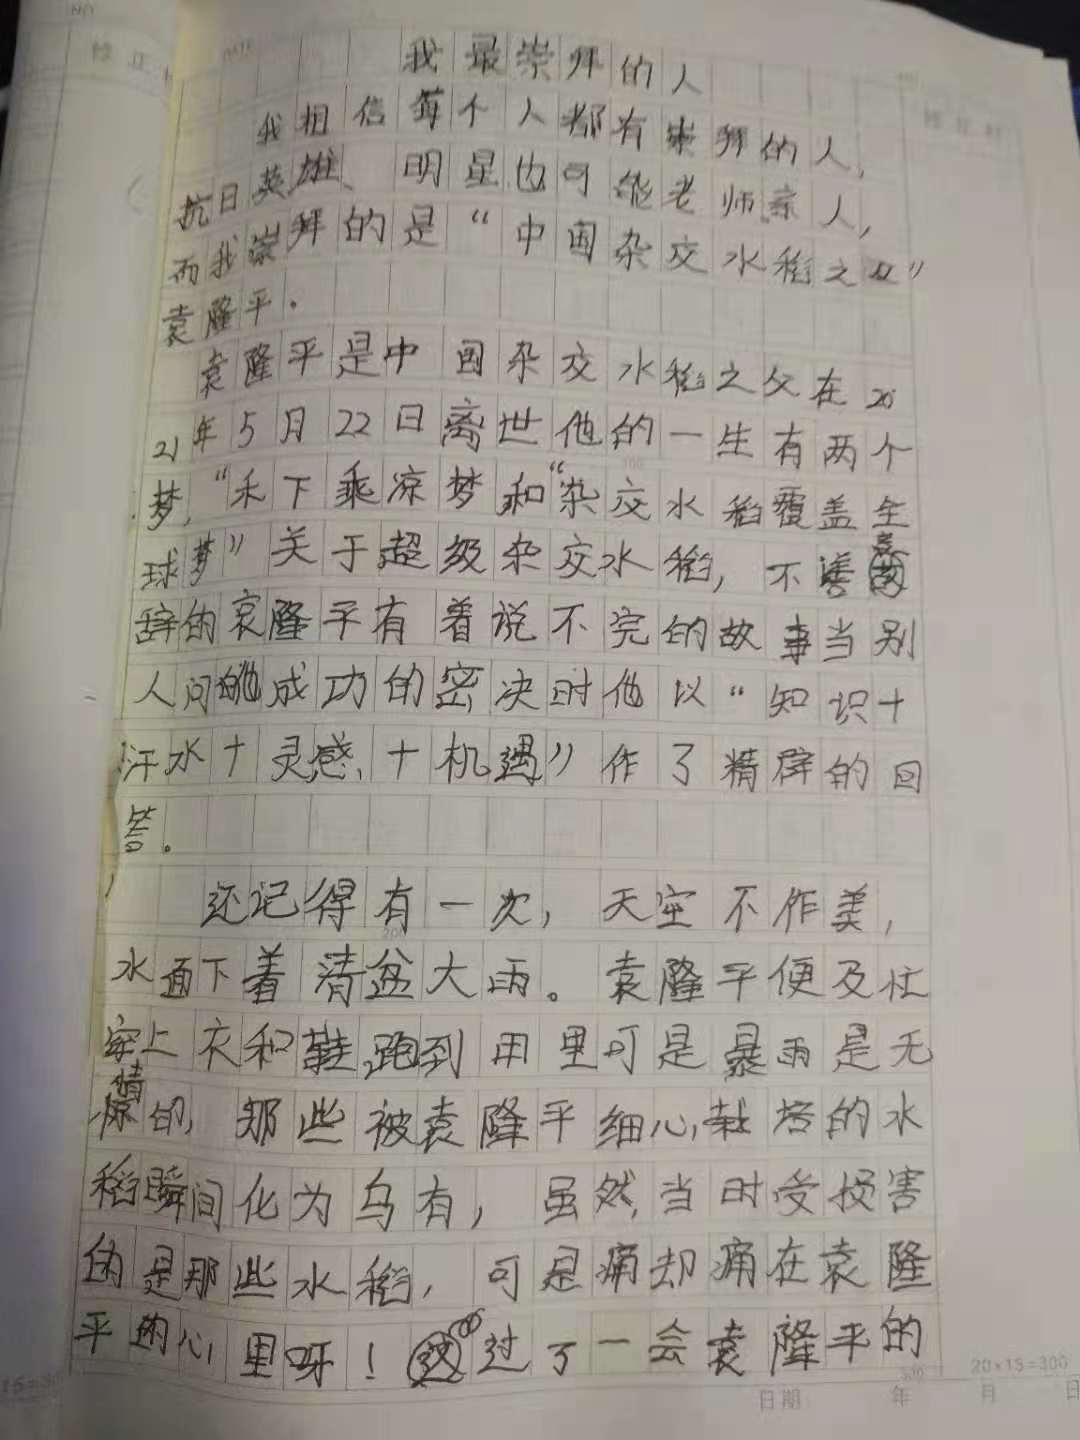 我最崇拜的人
我相信每个人都有崇拜的人,
抗日英雄、明星也可能老师家人,
而我崇拜的是“中国杂交水稻之父”
袁隆平.
袁隆平是中国杂交水稻之父在20
21年5月22日离世他的一生有两个
梦,“禾下乘凉梦和“杂交水稻覆盖全
球梦”关于超级杂交水稻,不
辞的袁隆平有着说不完的故事当别
人问他成功的密决时他以“知识十
汗水十灵感十机遇”作了精辟的回
答。
还记得有一次,天空不作美,
水面下着清盆大雨。袁隆平便及忙
穿上衣和鞋,跑到田里可是暴雨是无
情的,那些被袁隆平细心栽培的水
稻瞬间化为乌有,虽然,当时受损害
的是那些水稻,可是痛却痛在袁隆
平的心里呀!过了一会袁隆平的
20×15=300
日期 年 月 日